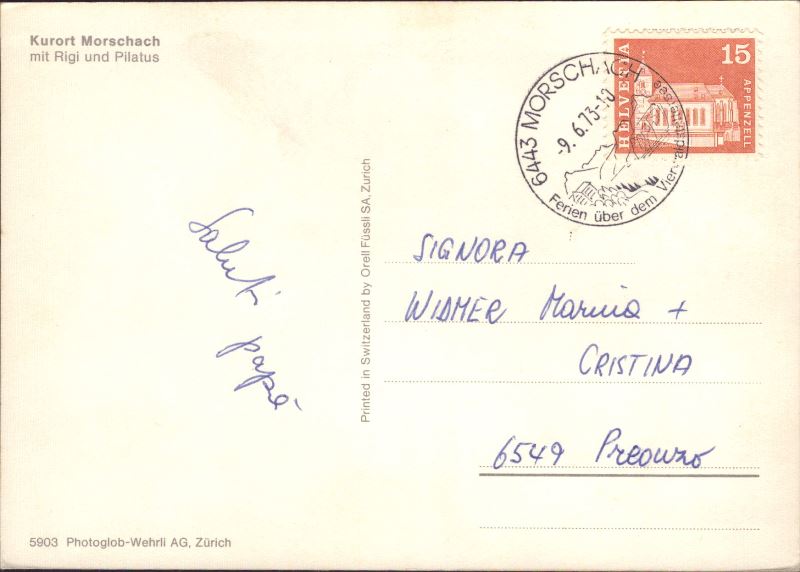 Kurort Morschach
mit Rigi und Pilatus
HELVETIA
15
APPENZELL
6443 MORSCHACH
-9.6.73-10
Ferien über dem Vierwaldstättersee
Saluti
papà
Printed in Switzerland by Orell Füssli SA, Zurich
SIGNORA
WIDMER Marina +
CRISTINA
6549 Preonzo
5903 Photoglob-Wehrli AG, Zürich